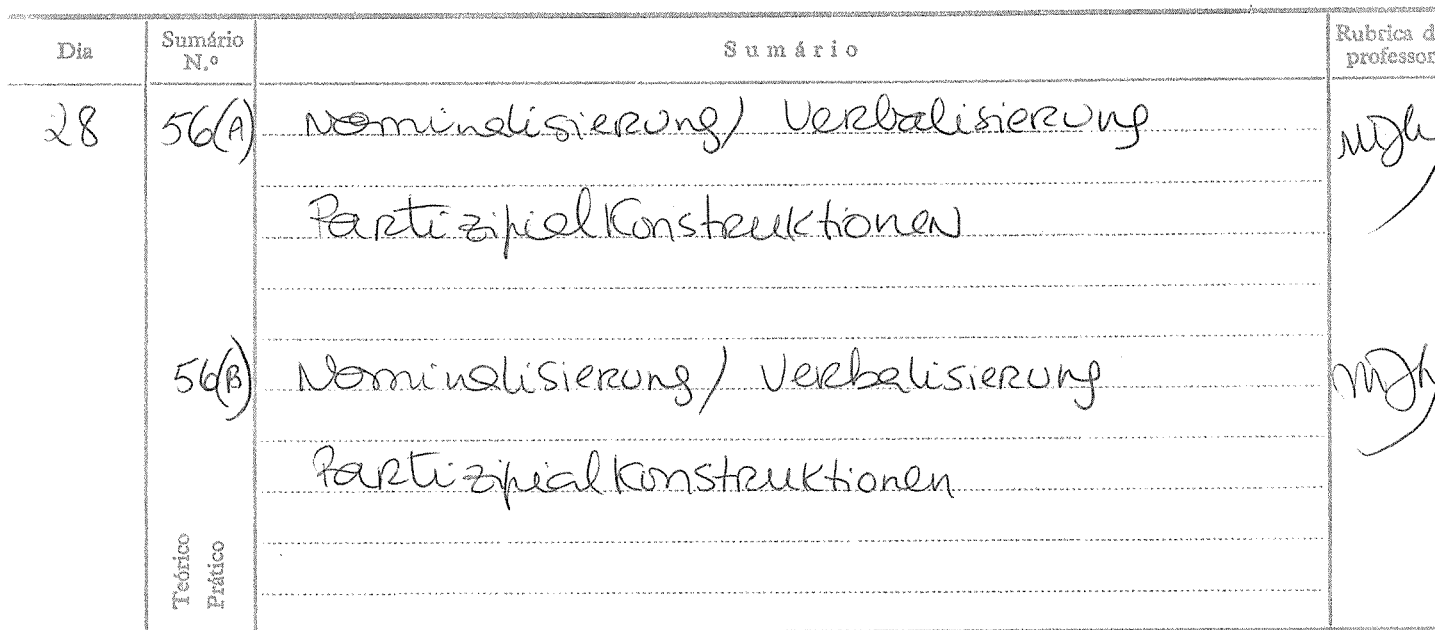 Dia
Sumário N.º
Sumário
Rubrica d
professor
28 56(A) Nominalisierung / Verbalisierung
Partizipialkonstruktionen
56(B) Nominalisierung / Verbalisierung
Partizipialkonstruktionen
Teórico
Prático